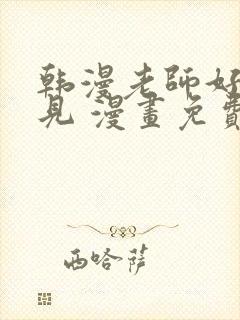 韩漫老師好
見 漫畫免費
西哈萨